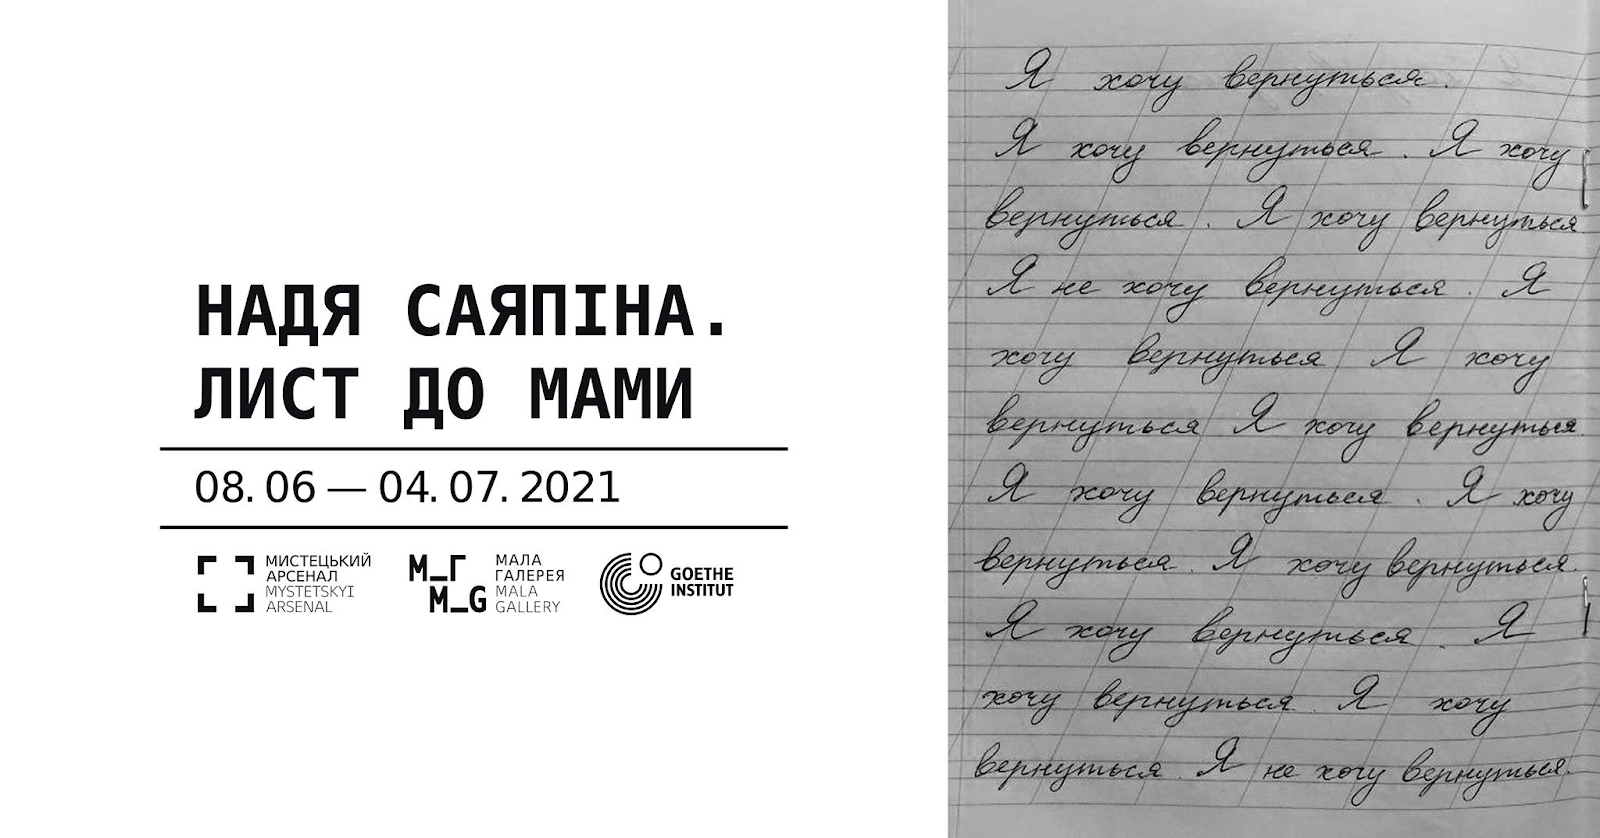 НАДЯ САЯПІНА.
ЛИСТ ДО МАМИ
08. 06 — 04. 07. 2021
МИСТЕЦЬКИЙ
АРСЕНАЛ
MYSTETSKYI
ARSENAL
М_Г
M_G
МАЛА
ГАЛЕРЕЯ
MALA
GALLERY
GOETHE
INSTITUT
Я хочу вернуться.
Я хочу вернуться. Я хочу
вернуться. Я хочу вернуться
Я не хочу вернуться. Я
хочу вернуться Я хочу
вернуться Я хочу вернуться.
Я хочу вернуться. Я хочу
вернуться. Я хочу вернуться.
Я хочу вернуться. Я
хочу вернуться. Я хочу
вернуться. Я не хочу вернуться.